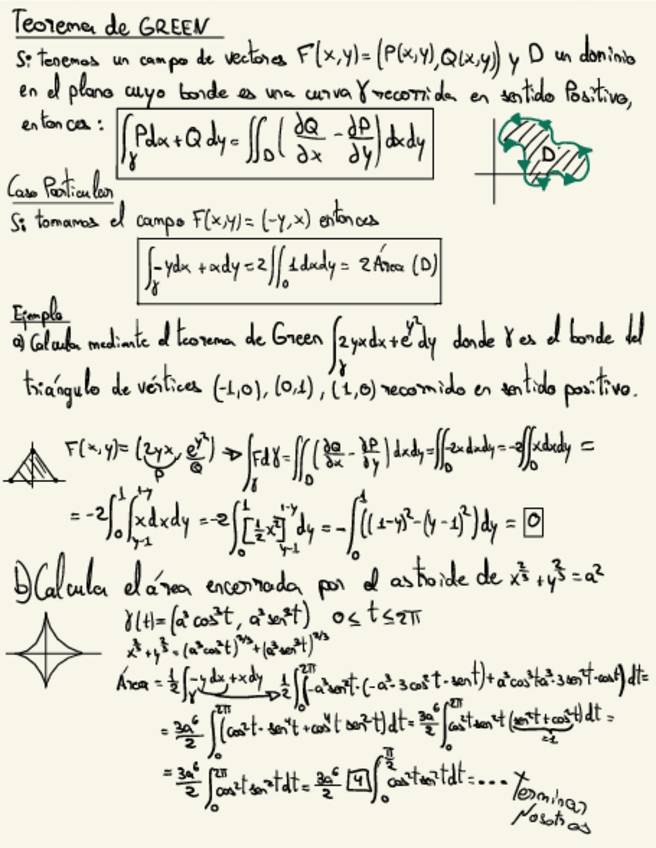 Teorema de GREEN
Si tenemos un campo de vectores F(x,y)=(P(x,y),Q(x,y)) y D un dominio
en el plano cuyo borde es una curva γ recorrida en sentido Positivo,
entonces: ∫_γ Pdx+Qdy=∬_D(∂Q/∂x - ∂P/∂y)dxdy
D
Caso Particular
Si tomamos el campo F(x,y)=(-y,x) entonces
∫_γ -ydx+xdy=2∬_D 1dxdy= 2Área (D)
Ejemplo
a) Calcular mediante el teorema de Green ∫_γ 2yxdx+e^{y²}dy donde γ es el borde del
triángulo de vértices (-1,0), (0,1), (1,0) recorrido en sentido positivo.
F(x,y)=(2yx, e^{y²}) → ∫_γ Fdγ=∬_D(∂Q/∂x - ∂P/∂y)dxdy=∬_D -2xdxdy=-2∬_D xdxdy =
P Q
= -2∫_0^1∫_{y-1}^{1-y} xdxdy = -2∫_0^1[1/2 x²]_{y-1}^{1-y} dy = -∫_0^1((1-y)²-(y-1)²)dy = 0
b) Calcula el área encerrada por el astroide de x^{2/3}+y^{2/3}=a²
γ(t)=(a³cos³t, a³sen³t) 0≤t≤2π
x^{2/3}+y^{2/3}=(a³cos³t)^{2/3}+(a³sen³t)^{2/3}
Área = 1/2∫_γ -ydx+xdy → 1/2∫_0^{2π}(-a³sen³t·(-a³·3cos²t·sent)+a³cos³t·a³·3sen²t·cost)dt=
= 3a⁶/2 ∫_0^{2π}(cos²t·sen⁴t+cos⁴t sen²t)dt= 3a⁶/2 ∫_0^{2π}cos²t sen²t (sen²t+cos²t)dt =
=1
= 3a⁶/2 ∫_0^{2π}cos²t sen²t dt = 3a⁶/2 4 ∫_0^{π/2}cos²t sen²t dt =.... Terminar
Nosotros